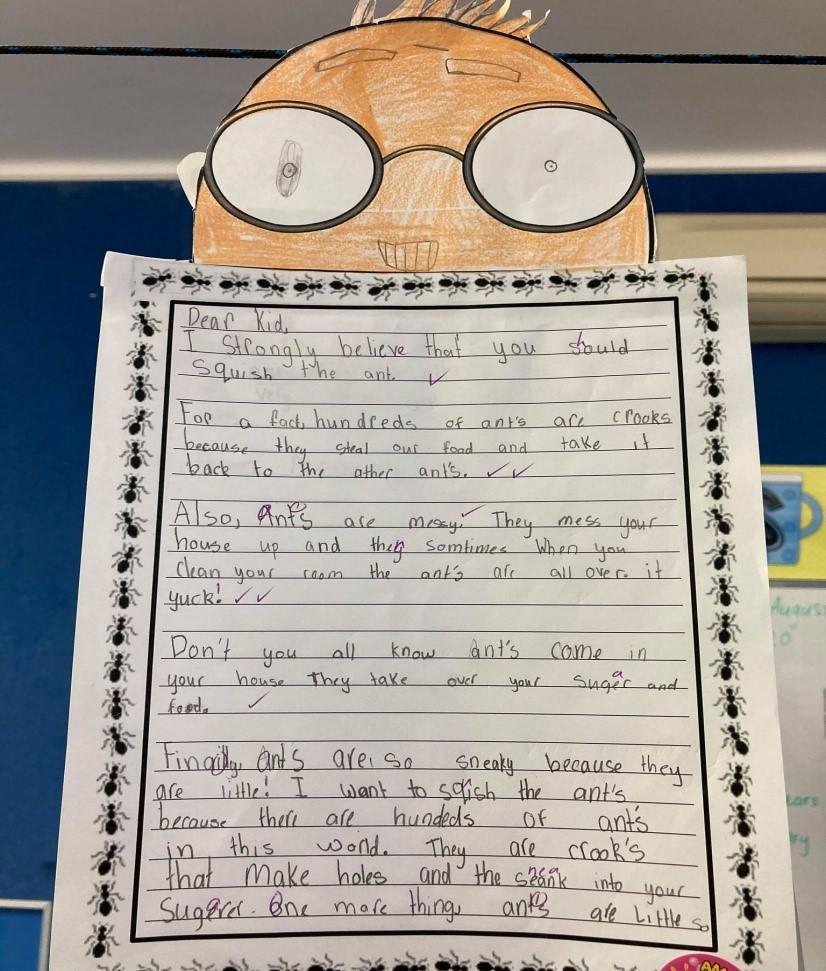 Dear Kid,
I Strongly believe that you should
Squish the ant.
For a fact, hundreds of ant's are crooks
because they steal our food and take it
back to the ather ant's.
Also, Ants are messy. They mess your
house up and they somtimes When you
Clean your room the ant's are all over it
yuck!
Don't you all know ant's come in
your house They take over your sugar and
food.
Finally, ants are so sneaky because they
are little! I want to sqish the ant's
because there are hundeds of ant's
in this world. They are crook's
that make holes and the sneak into your
Sugar. One more thing, ants are little so
Augus